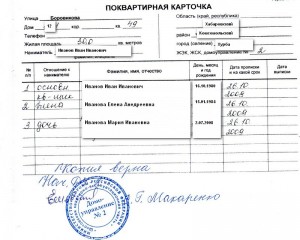 ПОКВАРТИРНАЯ КАРТОЧКА
Улица Боровинова
Дом 1 кв. 49
Телефон
Жилая площадь 30,0 кв. метров
Наниматель Иванов Иван Иванович
Область (край, республика)
Хабаровский
Район Комсомольский
город (селение) Хурба
ЖСЭК, ЖСК, домоуправление 2
№ п/п
Отношение к нанимателю
Фамилия, имя, отчество
День, месяц и год рождения
Дата прописки и на какой срок
Дата выписки
1 основн кв-щик Иванов Иван Иванович 26.10 2009
2 жена Иванова Елена Андреевна 26.10 2009
3 дочь Иванова Мария Ивановна 26.10 2009
Копия верна
Нач.
Г. Макаренко
Домо-
управление
№ 2